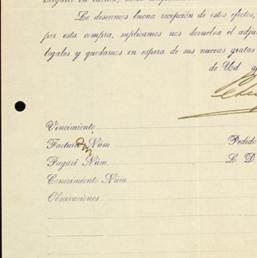 Le deseamos buena recepción de estos efectos,
por esta compra, suplicamos nos devuelva el adju
legales y quedamos en espera de sus nuevas gratas
de Ud
Vencimiento
Factura Núm.
Pedido
Pagaré Núm.
L. D
Conocimiento Núm.
Observaciones